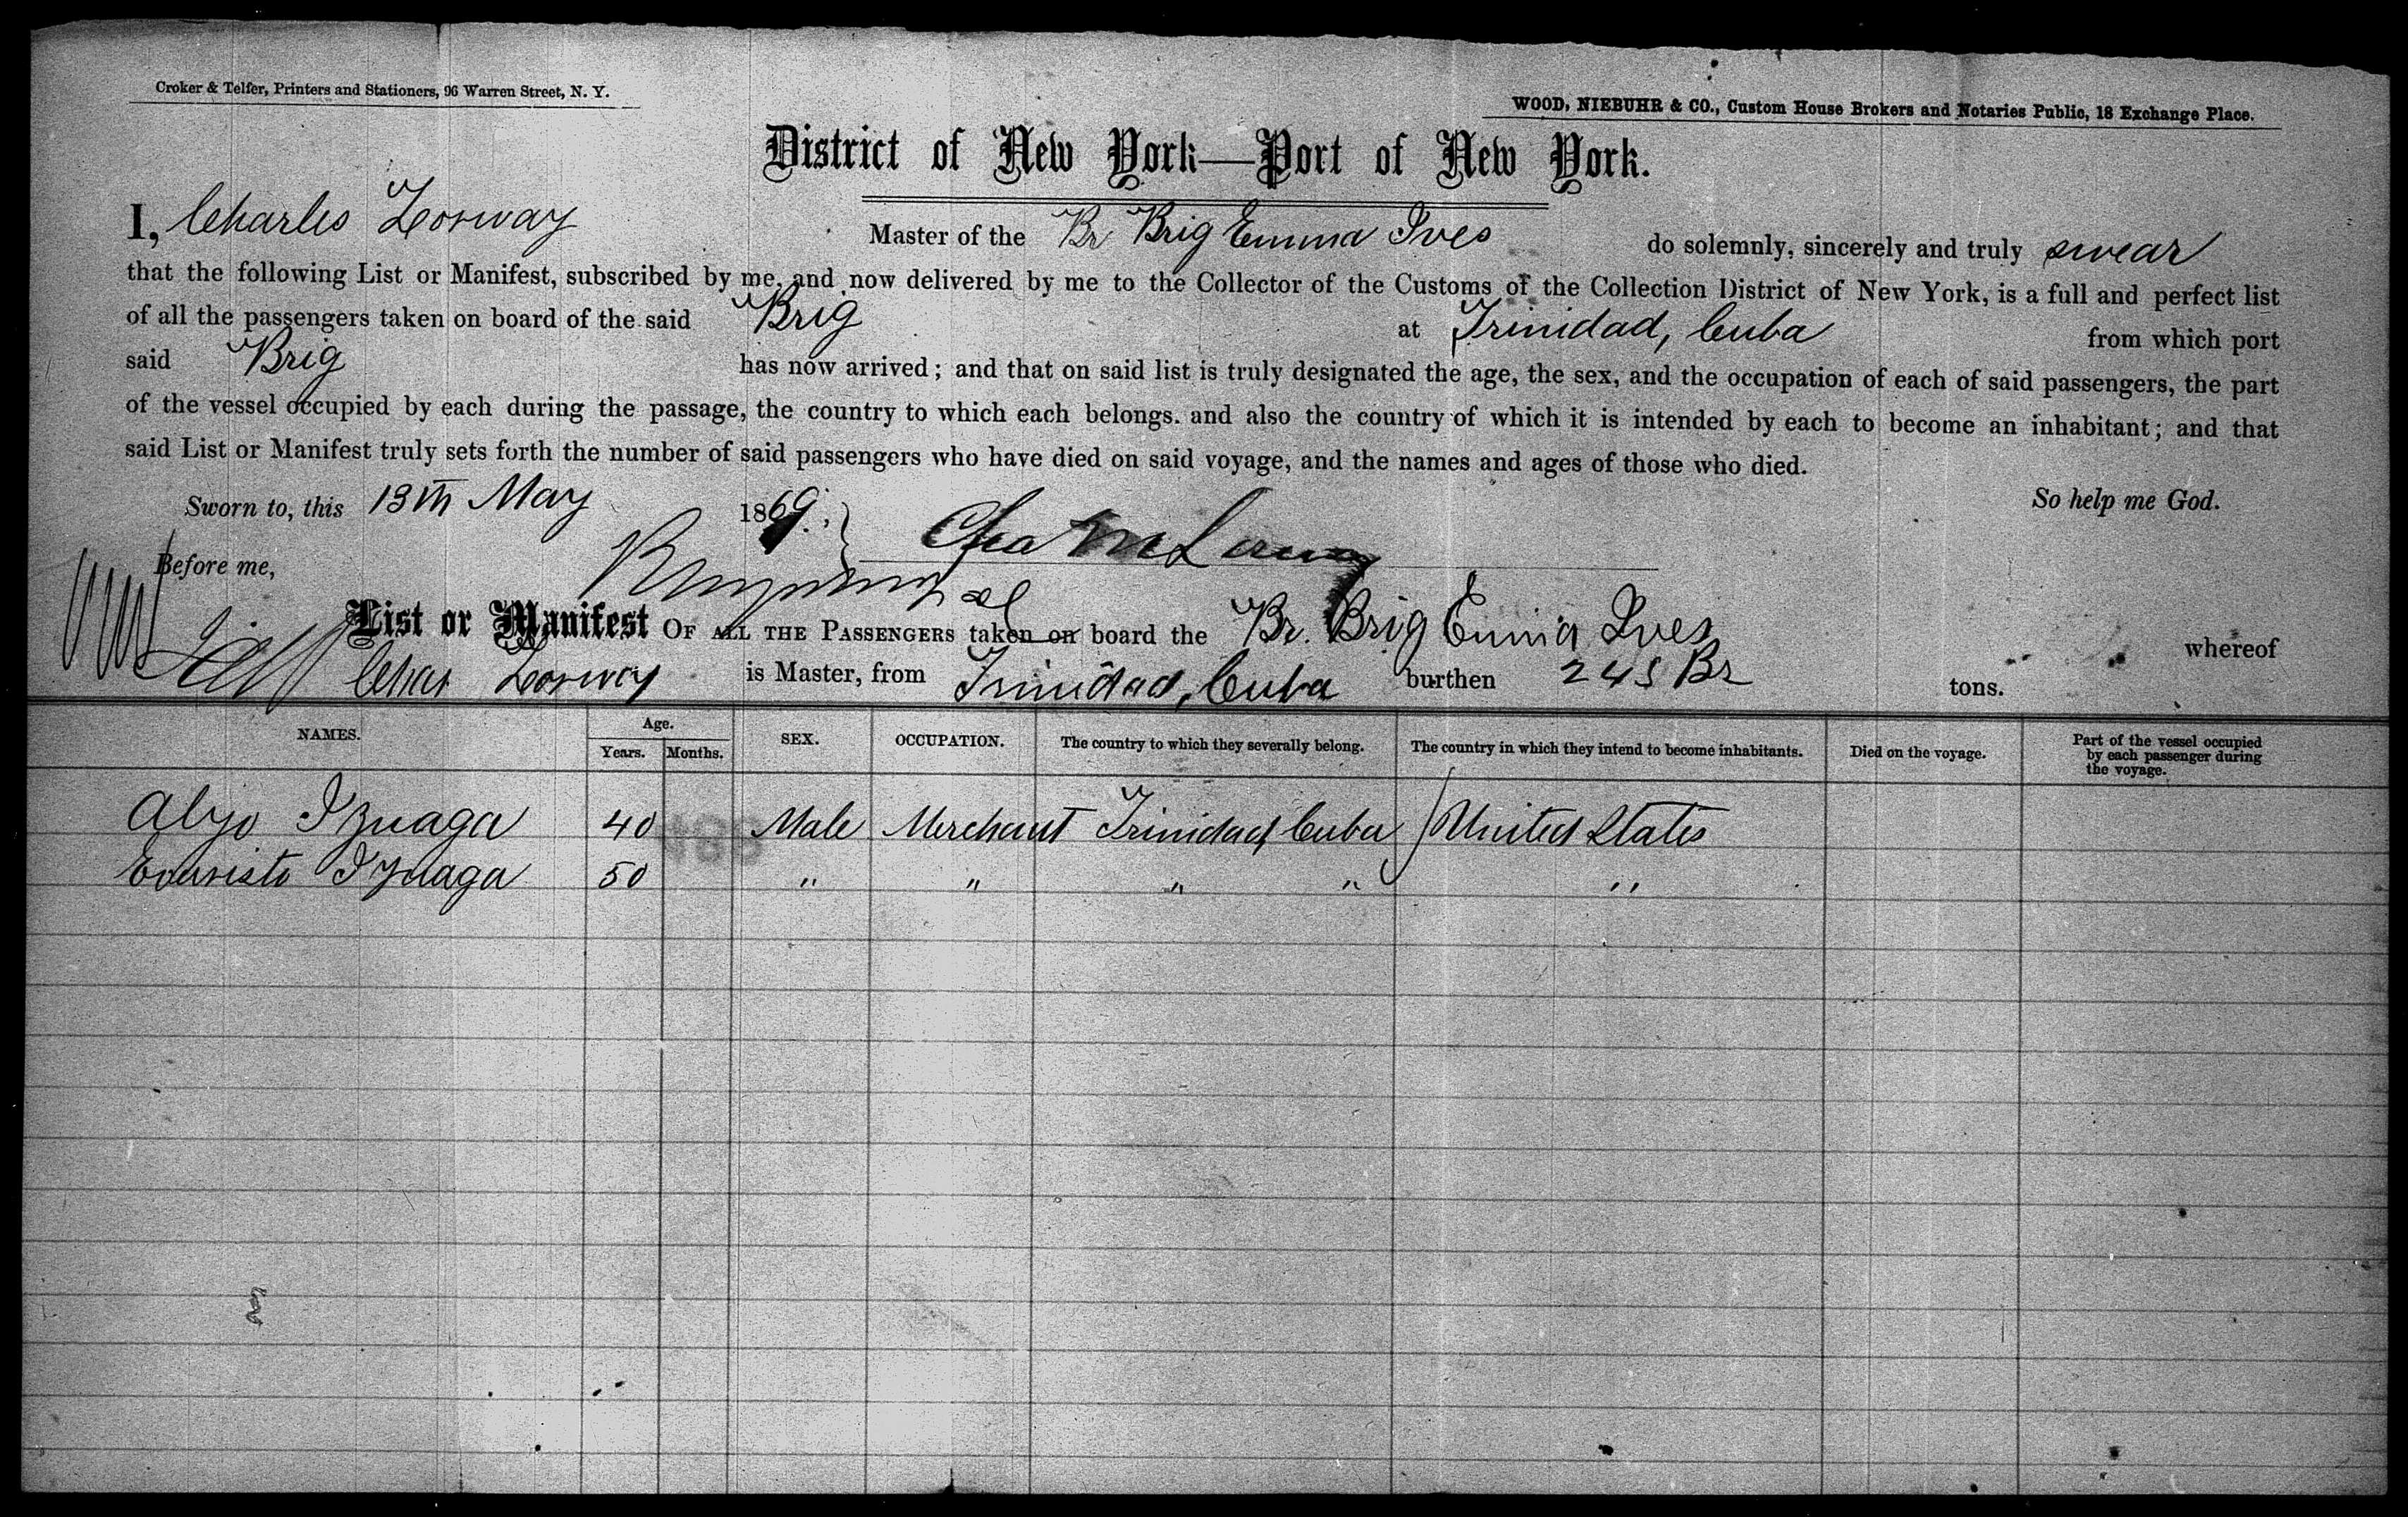 Croker & Telfer, Printers and Stationers, 96 Warren Street, N. Y.
WOOD, NIEBUHR & CO., Custom House Brokers and Notaries Public, 18 Exchange Place.
District of New York—Port of New York.
I, Charles Lorway Master of the Br Brig Emma Ives do solemnly, sincerely and truly swear
that the following List or Manifest, subscribed by me, and now delivered by me to the Collector of the Customs of the Collection District of New York, is a full and perfect list
of all the passengers taken on board of the said Brig at Trinidad, Cuba from which port
said Brig has now arrived; and that on said list is truly designated the age, the sex, and the occupation of each of said passengers, the part
of the vessel occupied by each during the passage, the country to which each belongs. and also the country of which it is intended by each to become an inhabitant; and that
said List or Manifest truly sets forth the number of said passengers who have died on said voyage, and the names and ages of those who died.
Sworn to, this 13th May 1869. So help me God.
Before me,
List or Manifest OF ALL THE PASSENGERS taken on board the Br. Brig Emma Ives whereof
Chas Lorway is Master, from Trinidad, Cuba burthen 245 Br tons.
NAMES. Age. Years. Months. SEX. OCCUPATION. The country to which they severally belong. The country in which they intend to become inhabitants. Died on the voyage. Part of the vessel occupied by each passenger during the voyage.
Alejo Iznaga 40 Male Merchant Trinidad, Cuba United States
Evaristo Iznaga 50 " " " " "